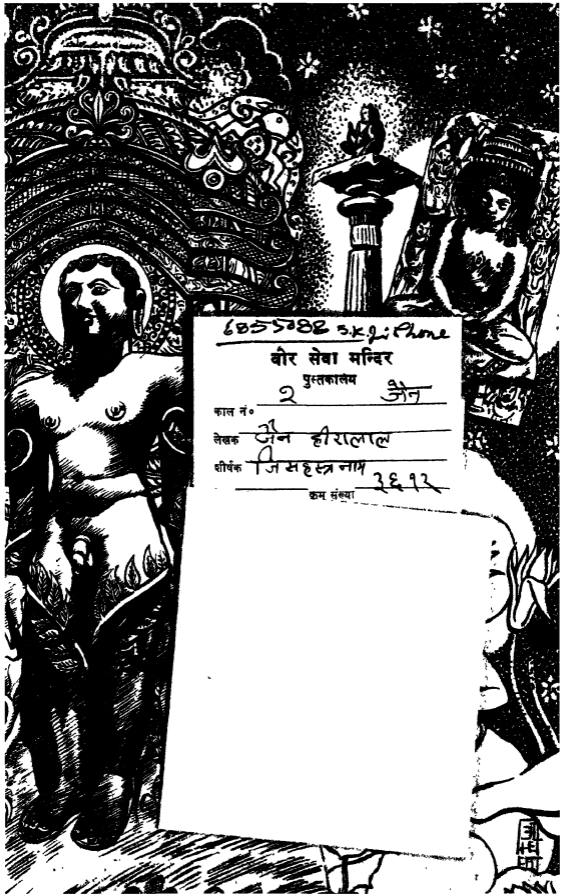 6855088 S.K. Ji Phone
वीर सेवा मन्दिर
पुस्तकालय
काल नं० २ जैन
लेखक जैन हीरालाल
शीर्षक जि सहस्त्र नाम
क्रम संख्या ३६१२